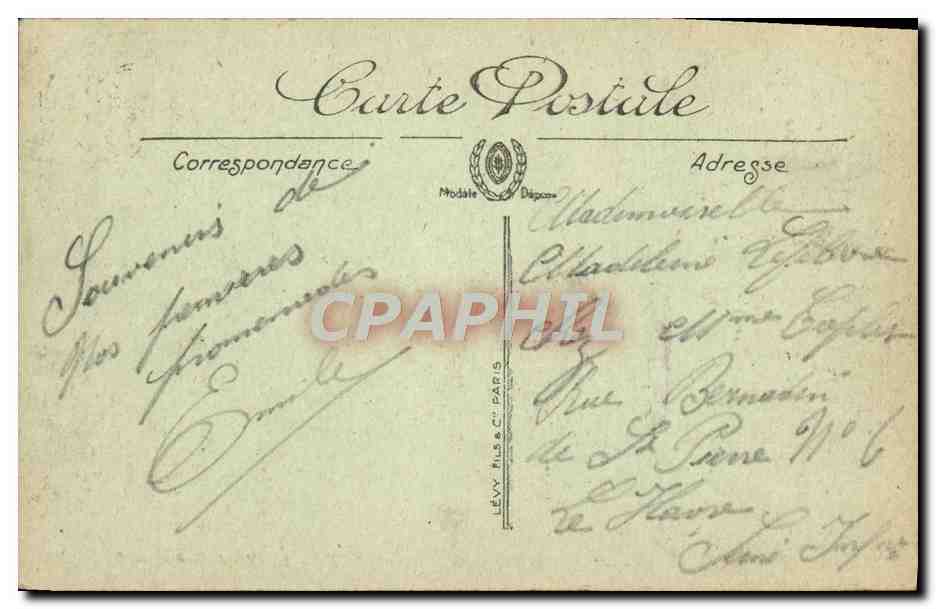 Carte Postale
Correspondance
Adresse
Modèle Déposé
Souvenirs de
Nos premières
promenades
Emile
CPARPHIL
LÉVY FILS & Cie PARIS
Mademoiselle
Madeleine Lefebvre
chez Mme
Rue Bernardin
de St Pierre No 6
Le Havre
Seine Infre